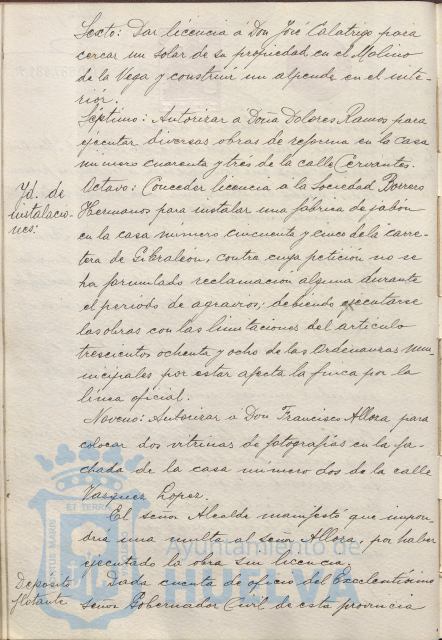 Sexto: Dar licencia á Don José Calatrigo para
cercar un solar de su propiedad en el Molino
de la Vega y construir un alpende en el inte-
rior.
Séptimo: Autorizar á Doña Dolores Ramos para
ejecutar diversas obras de reforma en la casa
número cuarenta y tres de la calle Cervantes.
Yd. de
instalacio-
nes:
Octavo: Conceder licencia á la Sociedad Borrero
Hermanos para instalar una fábrica de jabón
en la casa número cincuenta y cinco de la carre-
tera de Gibraleón, contra cuya petición no se
ha formulado reclamación alguna durante
el período de agravios; debiendo ejecutarse
las obras con las limitaciones del artículo
trescientos ochenta y ocho de las Ordenanzas mu-
nicipales por estar afecta la finca por la
línea oficial.
Noveno: Autorizar á Don Francisco Allora para
colocar dos vitrinas de fotografías en la fa-
chada de la casa número dos de la calle
Vazquez Lopez.
El señor Alcalde manifestó que impon-
dría una multa al señor Allora, por haber
ejecutado la obra sin licencia.
Depósito
flotante
Dada cuenta de oficio del Excelentísimo
señor Gobernador Civil de esta provincia
Ayuntamiento de
HUELVA